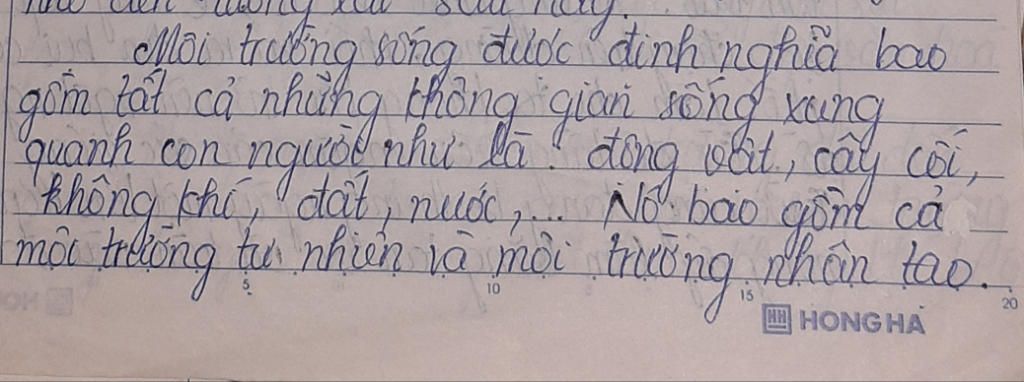 Môi trường sống được định nghĩa bao
gồm tất cả những không gian sống xung
quanh con người như là: động vật, cây cối,
không khí, đất, nước,... Nó bao gồm cả
môi trường tự nhiên và môi trường nhân tạo.
5 10 15 20
HH HONG HA